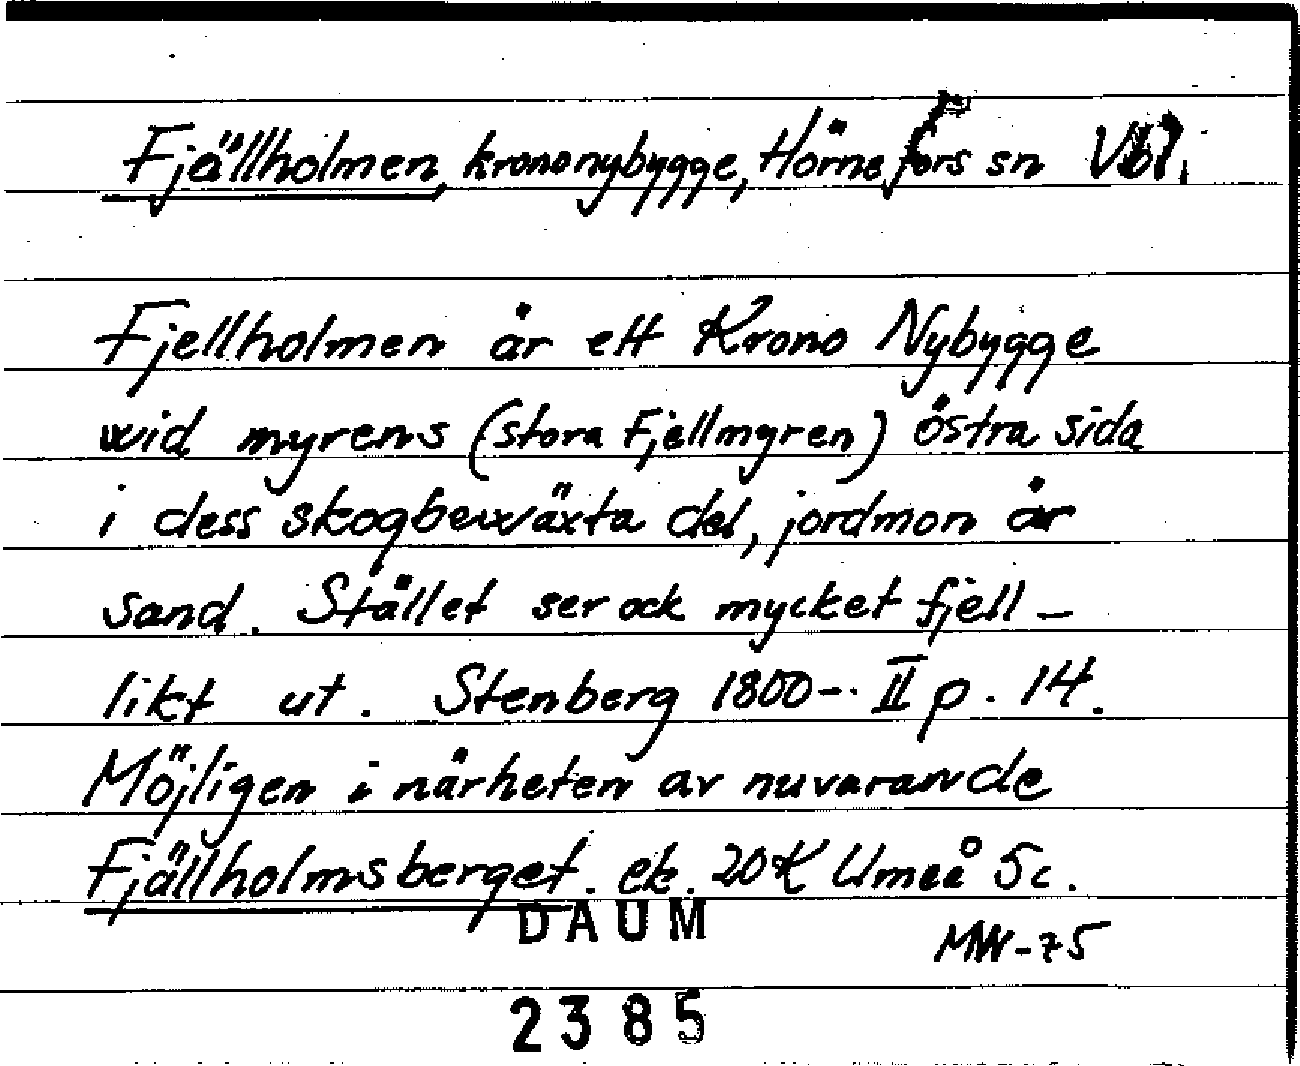 Fjällholmen, krononybygge, Hörnefors sn Vbl.
Fjellholmen är ett Krono Nybygge
wid myrens (stora Fjellmyren) östra sida
i dess skogbewäxta del, jordmon är
sand. Stället ser ock mycket fjell-
likt ut. Stenberg 1800-. II p. 14.
Möjligen i närheten av nuvarande
Fjällholmsberget. ek. 20K Umeå 5c.
DAUM
MW-75
2385